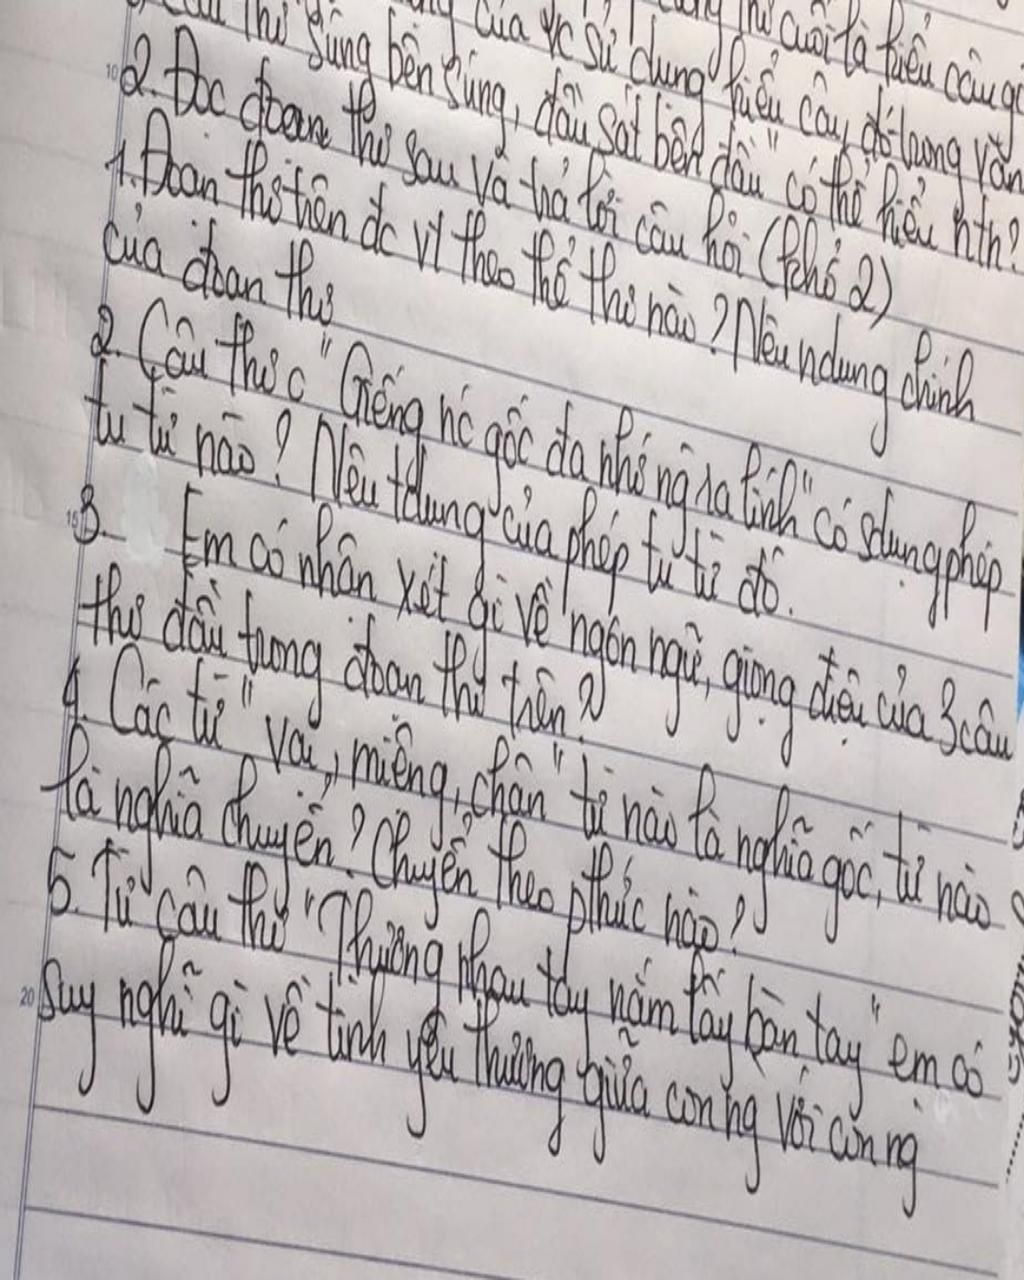 của vc sử dụng kiểu câu đó trong văn
thơ cuối là kiểu câu gì
thơ súng bên súng, đầu sát bên đầu" có thể hiểu nth?
2. Đọc đoạn thơ sau và trả lời câu hỏi (khổ 2)
1. Đoạn thơ trên đc vt theo thể thơ nào? Nêu ndung chính
của đoạn thơ
2. Câu thơ c "Giếng nc gốc đa nhớ ng ra lính" có sdụng phép
tu từ nào? Nêu tdung của phép tu từ đó.
3. Em có nhân xét gì về ngôn ngữ, giọng điệu của 3 câu
thơ đầu trong đoạn thơ trên?
4. Các từ "vai, miệng, chân" từ nào là nghĩa gốc, từ nào
là nghĩa chuyển? Chuyển theo pthức nào?
5. Từ câu thơ "Thương nhau tay nắm lấy bàn tay" em có
suy nghĩ gì về tình yêu thương giữa con ng với con ng